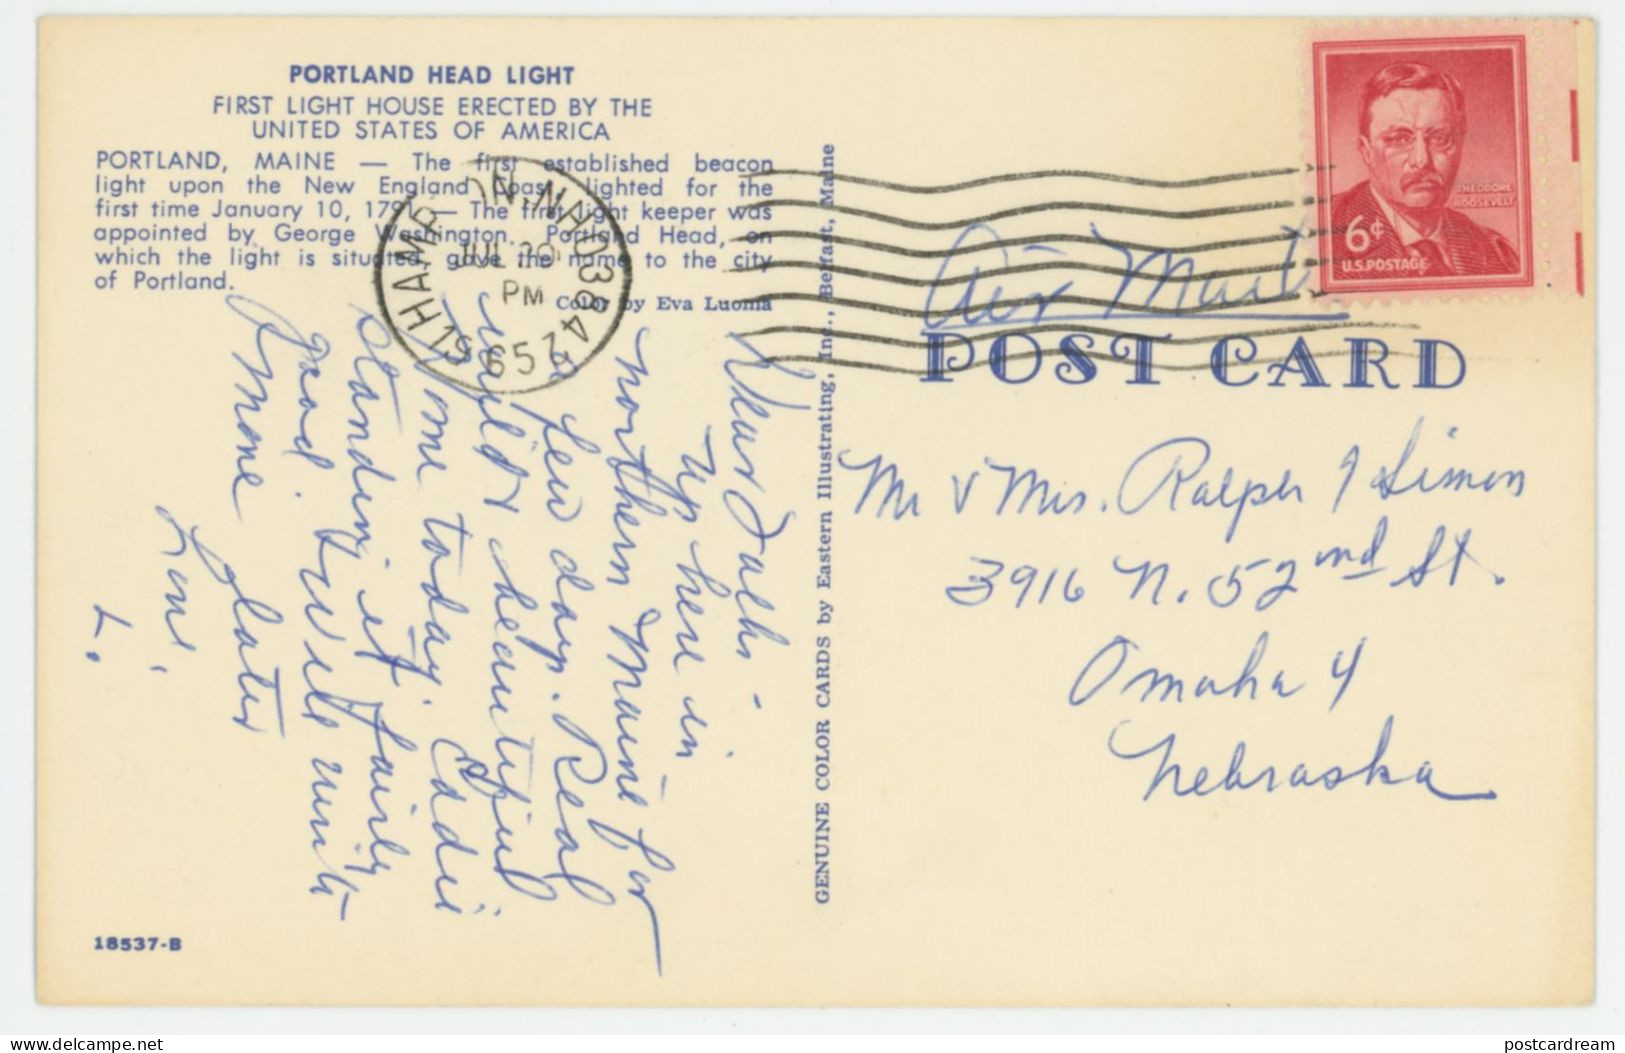 PORTLAND HEAD LIGHT
FIRST LIGHT HOUSE ERECTED BY THE
UNITED STATES OF AMERICA
PORTLAND, MAINE — The first established beacon
light upon the New England Coast, lighted for the
first time January 10, 1791 — The first light keeper was
appointed by George Washington. Portland Head, on
which the light is situated, gave the name to the city
of Portland.
Color by Eva Luoma
N.HAMPTON, N.H. 03842
JUL 29
PM
1965
Dear Folks -
up here in
northern Maine for
a few days. Real
wild & beautiful
Home today. Eddie
standing it fairly
good. Will write
more later
Love,
L.
18537-B
GENUINE COLOR CARDS by Eastern Illustrating, Inc., Belfast, Maine
THEODORE
ROOSEVELT
6¢
U.S. POSTAGE
Air Mail
POST CARD
Mr & Mrs. Ralph J Simon
3916 N. 52nd St.
Omaha 4
Nebraska
the-main-deck
postcardream